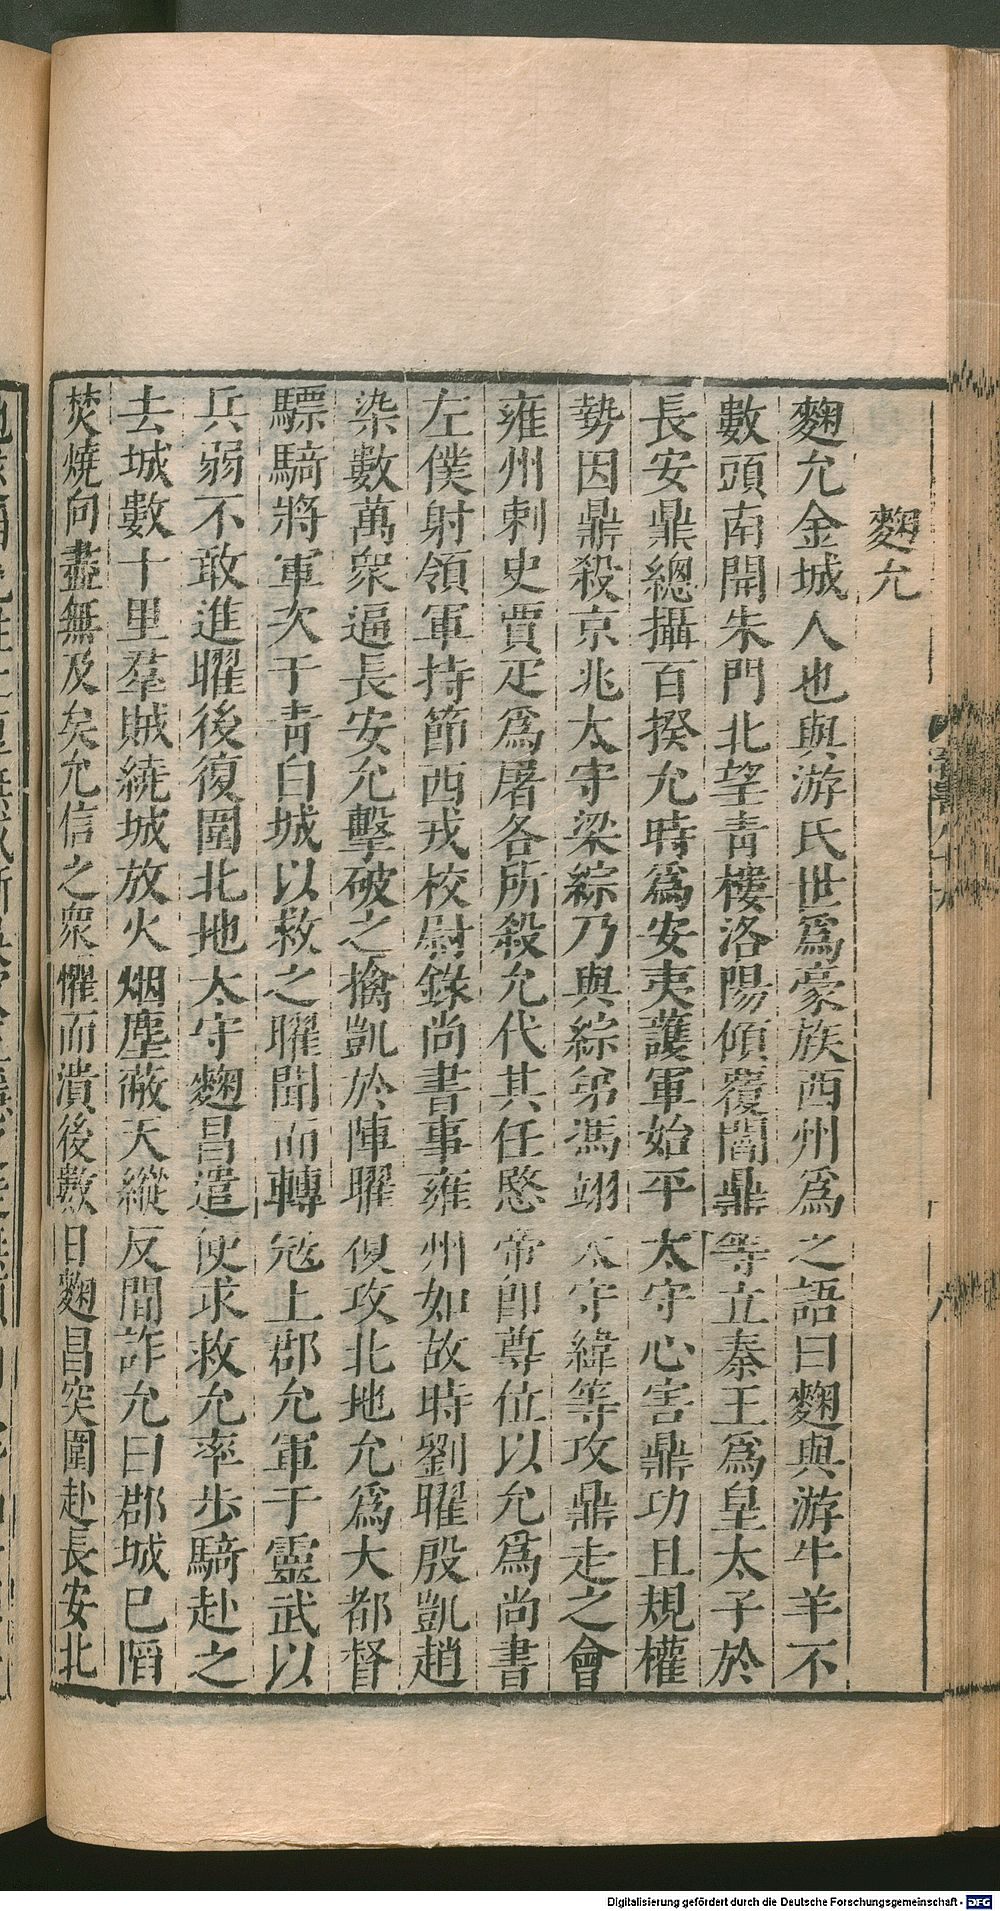 麴允
麴允金城人也與游氏世爲豪族西州爲之語曰麴與游牛羊不
數頭南開朱門北望青樓洛陽傾覆閻鼎等立秦王爲皇太子於
長安鼎總攝百揆允時爲安夷護軍始平太守心害鼎功且規權
勢因鼎殺京兆太守梁綜乃與綜弟馮翊太守緯等攻鼎走之會
雍州刺史賈疋爲屠各所殺允代其任愍帝卽尊位以允爲尚書
左僕射領軍持節西戎校尉錄尚書事雍州如故時劉曜殷凱趙
染數萬衆逼長安允擊破之擒凱於陣曜復攻北地允爲大都督
驃騎將軍次于青白城以救之曜聞而轉寇上郡允軍于靈武以
兵弱不敢進曜後復圍北地太守麴昌遣使求救允率步騎赴之
去城數十里羣賊繞城放火烟塵蔽天縱反間詐允曰郡城已陷
焚燒向盡無及矣允信之衆懼而潰後數日麴昌突圍赴長安北
Digitalisierung gefördert durch die Deutsche Forschungsgemeinschaft - DFG